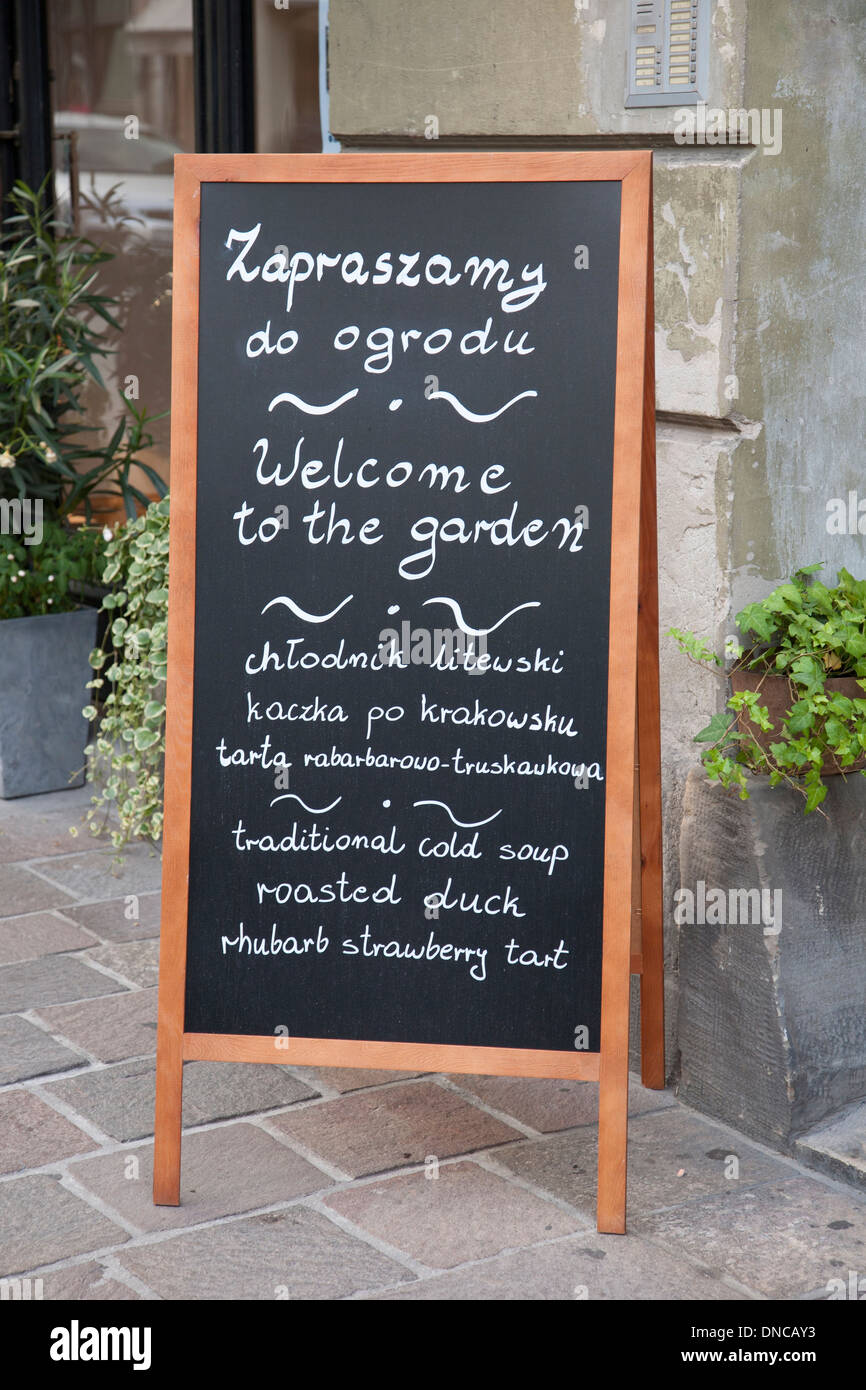 Zapraszamy
do ogrodu
Welcome
to the garden
chłodnik litewski
kaczka po krakowsku
tarta rabarbarowo-truskawkowa
traditional cold soup
roasted duck
rhubarb strawberry tart
alamy
alamy
Image ID: DNCAY3
www.alamy.com